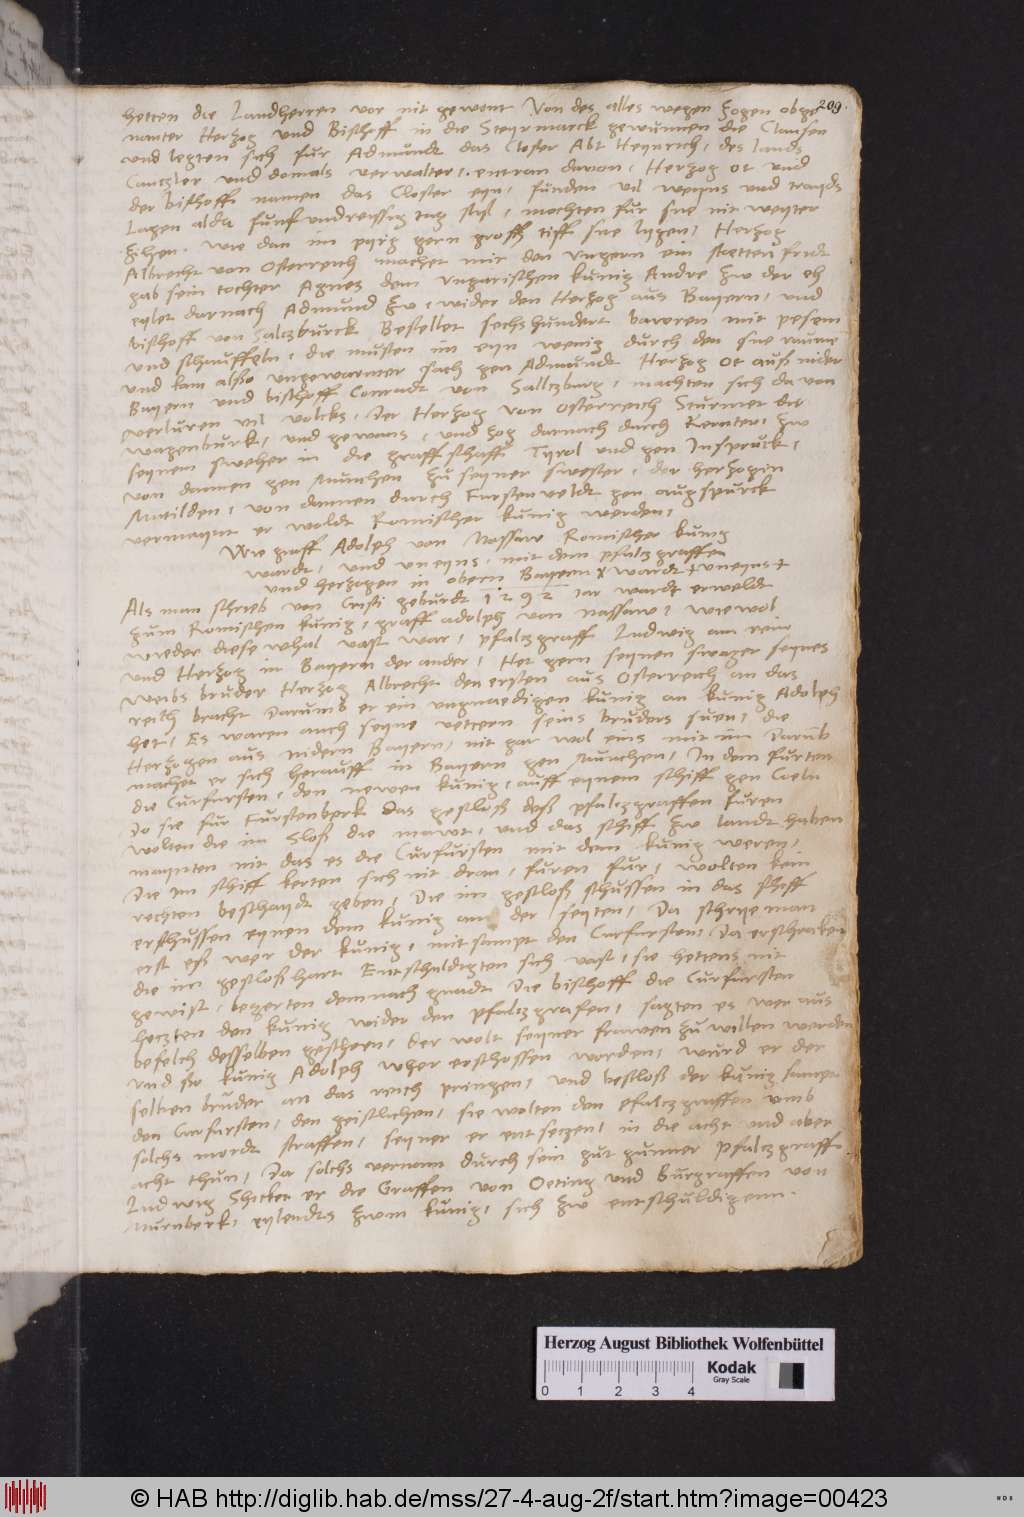 209.
hetten die Landherren vor nit gewont Von des alles wegen zogen obge
nanter Hertzog und Bischoff in die Steyrmarck gewunnen die Clausen
und legten sich fur Admundt das Closter Abt Heynrich, des lands
Cantzler und domals verwalter, entran davon, Hertzog Ot und
der bischoff namen das Closter eyn, funden vil weyns und trayds
Lagen alda funf und reissig tag stil, mochten fur sne nit weyter
zihen. wie dan im pyrg gern gross tiff sne lygen, Hertzog
Albrecht von Osterreich machet mit den ungern ein stetten fridt
gab sein tochter Agnes dem ungarischen kunig Andre zw der eh
eylet darnach Admund zw, wider den Hertzog aus Bayern, und
bischoff von Saltzburck Bestellet sechshundert bawren mit pesem
und schauffeln, die musten im eyn wenig durch den sne raume
und kam also ungewarnter sach gen Admundt Hertzog Ot auß nider
Bayern und bischoff Conradt von Salltzburg, machten sich da von
verluren vil volcks, Der Hertzog von Osterreich Sturmet die
wagenburk, und gewans, und zog darnach durch Kernten, zw
seynem sweher in die graffschafft Tyrol und gen Inspruck,
von dannen gen Munchen zu seyner swester, der hertzogin
Matilden, von dannen durch Furstenveldt gen augspurck
vermaynt er woldt Romischer kunig werden,
Wie graff Adolph von Nassaw Romischer kunig
wardt, und uneyns, mit dem pfaltzgraffen
und hertzogen in obern Bayern wardt uneyns
Als man schrieb von Cristi geburdt 1292 iar wardt erweldt
zum Romischen kunig, graff adolph von nassaw, wiewol
wieder diese whal vast war, pfaltzgraff Ludwig am rein
und Hertzog in Bayern der ander, Het gern seynen swager seynes
weibs bruder Hertzog Albrecht den ersten aus Osterreich an das
reich bracht Darumb er ein ungnaedigen kunig an kunig Adolph
het, Es waren auch seyne vettern seins bruders suen, die
Hertzogen aus nidern Bayern, nit gar wol eins mit im Darub
machet er sich herauff in Bayern gen Munchen, In dem furten
die Curfursten, den newen kunig, auff eynem schiff gen Coeln
Do sie fur Furstenberk das gesloß deß pfaltzgraffen furen
wolten die im Sloß die mawt, und das schiff zw landt haben
maynten nit das es die Curfursten mit dem kunig weren,
Die im schiff kerten sich nit dran, furen fur, wolten kain
rechten beschaydt geben, Die im gesloß schussen in das schiff
erschussen eynen dem kunig an der seyten, Da schrye man
erst eß wer der kunig, mit sampt den Curfursten, Da erschraken
die im gesloß hart Entschuldigten sich vast, sie hettens nit
gewist, begerten demnach gnadt Die bischoff die Curfursten
hetzten den kunig wider den pfaltzgrafen, sagten es wer aus
befelch desselben gescheen, Der wolt seyner frawen zu willen werden
und so kunig Adolph wher erschossen worden, wurd er der
selben bruder an das reich pringen, und besloß der kunig sampt
den Curfursten, den geistlichen, sie wolten den pfaltzgraffen umb
solchs mordt straffen, seyner er entsetzen, in die acht und aber
acht thun, Da solchs vernam durch sein gut gunner Pfaltzgraff
Ludwig Shicket er die Graffen von Oeting und Burgraffen von
Nurnberk, eylendts zwm kunig, sich zw entschuldigenn.
Herzog August Bibliothek Wolfenbüttel
Kodak
Gray Scale
0 1 2 3 4
© HAB http://diglib.hab.de/mss/27-4-aug-2f/start.htm?image=00423